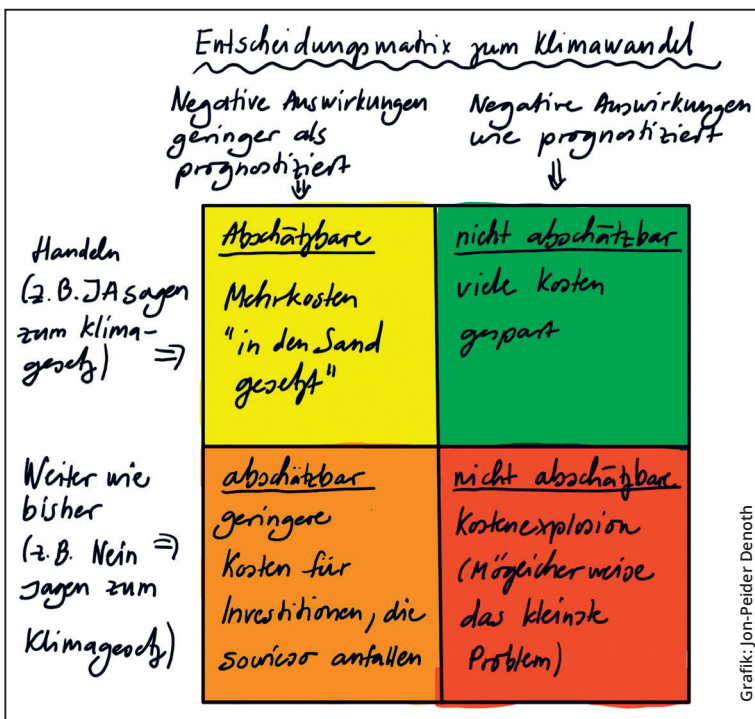 Entscheidungsmatrix zum Klimawandel
Negative Auswirkungen
geringer als
prognostiziert
Negative Auswirkungen
wie prognostiziert
Handeln
(z.B. JA sagen
zum Klima-
gesetz)
Abschätzbare
Mehrkosten
"in den Sand
gesetzt"
nicht abschätzbar
viele Kosten
gespart
Weiter wie
bisher
(z.B. Nein
sagen zum
Klimagesetz)
abschätzbar
geringere
Kosten für
Investitionen, die
sowieso anfallen
nicht abschätzbare
Kostenexplosion
(Möglicherweise
das kleinste
Problem)
Grafik: Jon-Peider Denoth